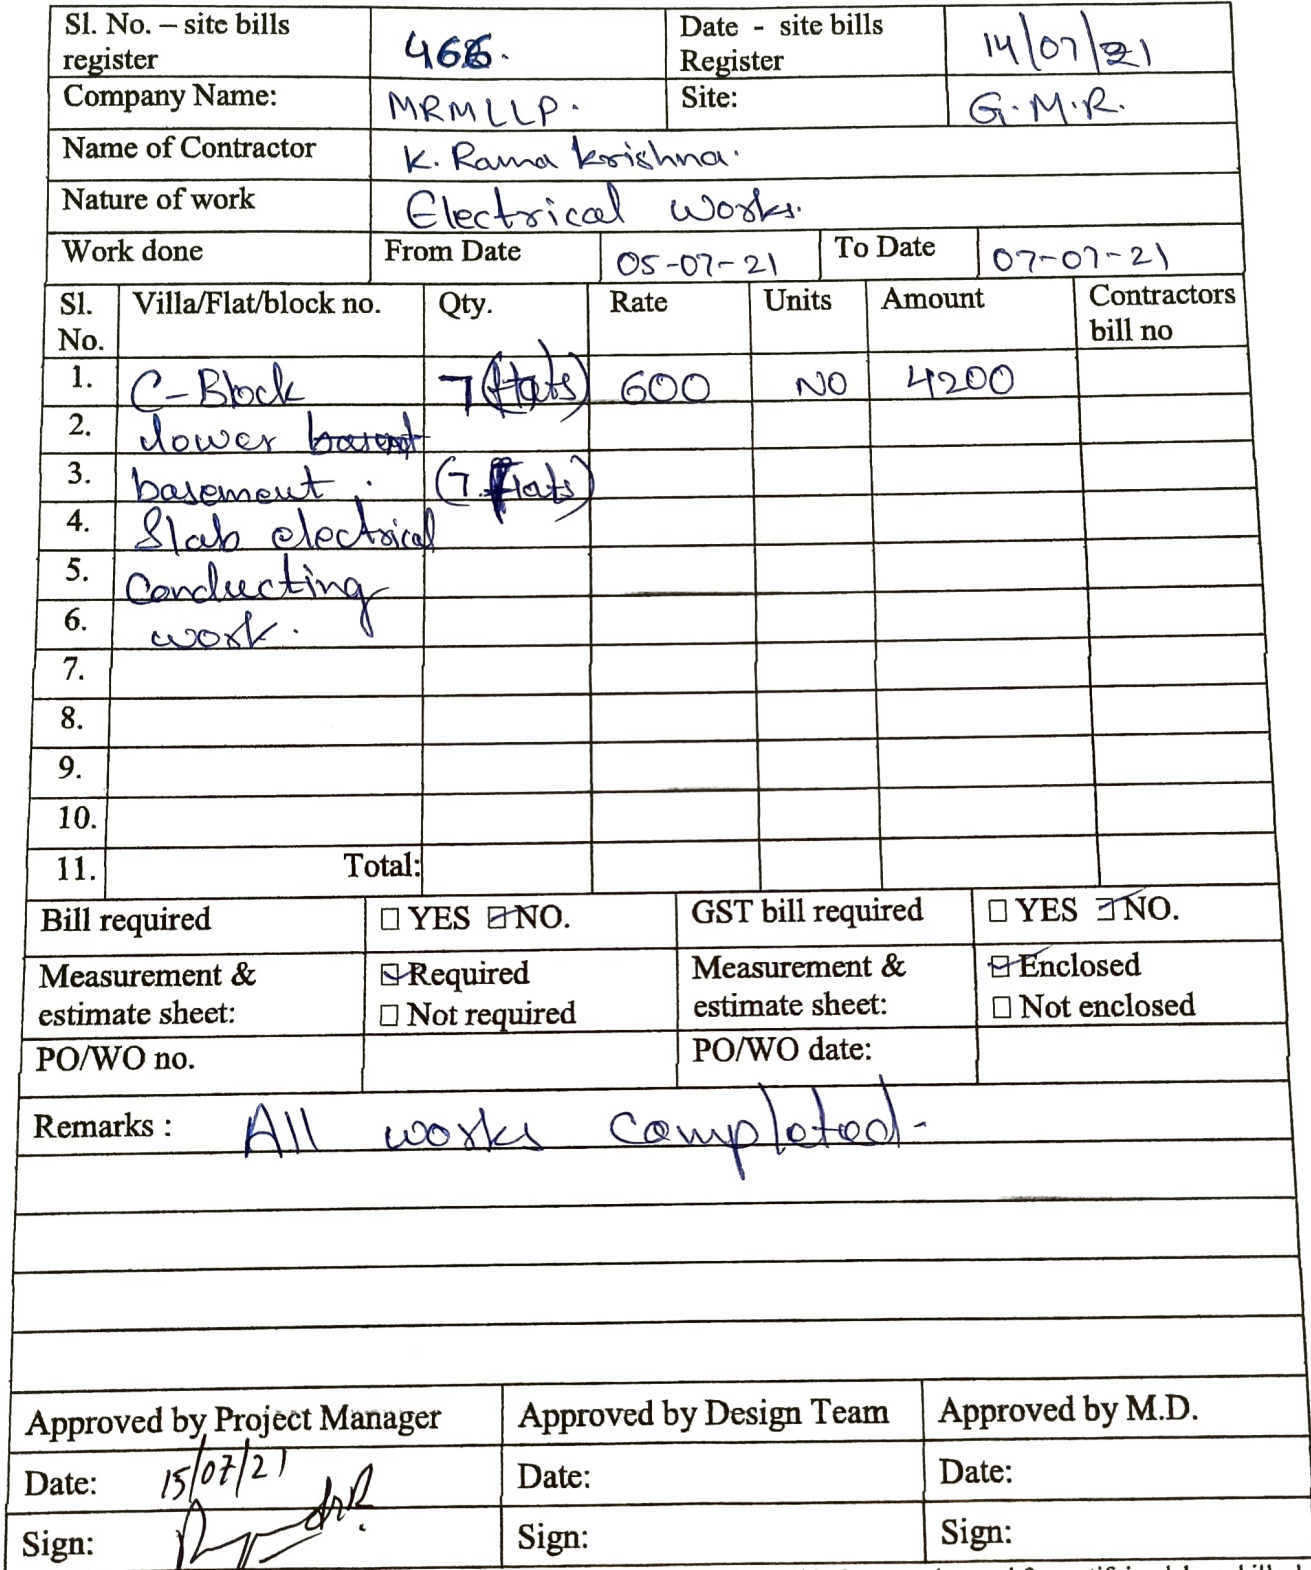 Sl. No. – site bills register 466. Date - site bills Register 14/07/21
Company Name: MRMLLP. Site: G.M.R.
Name of Contractor K. Rama krishna.
Nature of work Electrical works.
Work done From Date 05-07-21 To Date 07-07-21
Sl. No. Villa/Flat/block no. Qty. Rate Units Amount Contractors bill no
1. C-Block 7 (flats) 600 NO 4200
2. lower
3. basement. (7 flats)
4. Slab electrical
5. Conducting
6. work.
7.
8.
9.
10.
11. Total:
Bill required ☐ YES ☑ NO. GST bill required ☐ YES ☑ NO.
Measurement & estimate sheet: ☑ Required ☐ Not required Measurement & estimate sheet: ☑ Enclosed ☐ Not enclosed
PO/WO no. PO/WO date:
Remarks : All works completed-
Approved by Project Manager Approved by Design Team Approved by M.D.
Date: 15/07/21 Date: Date:
Sign: Sign: Sign: